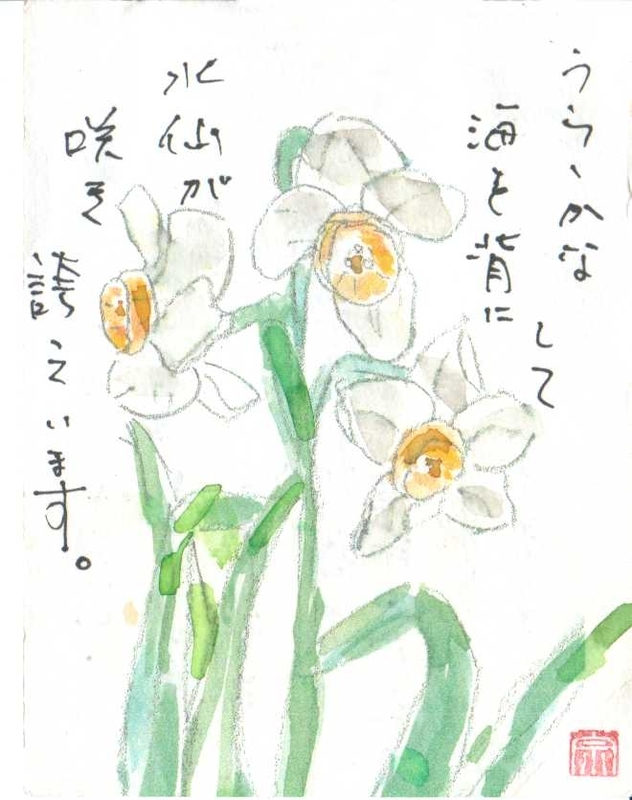 うらゝかな
海を背にして
水仙が
咲き
誇っています。